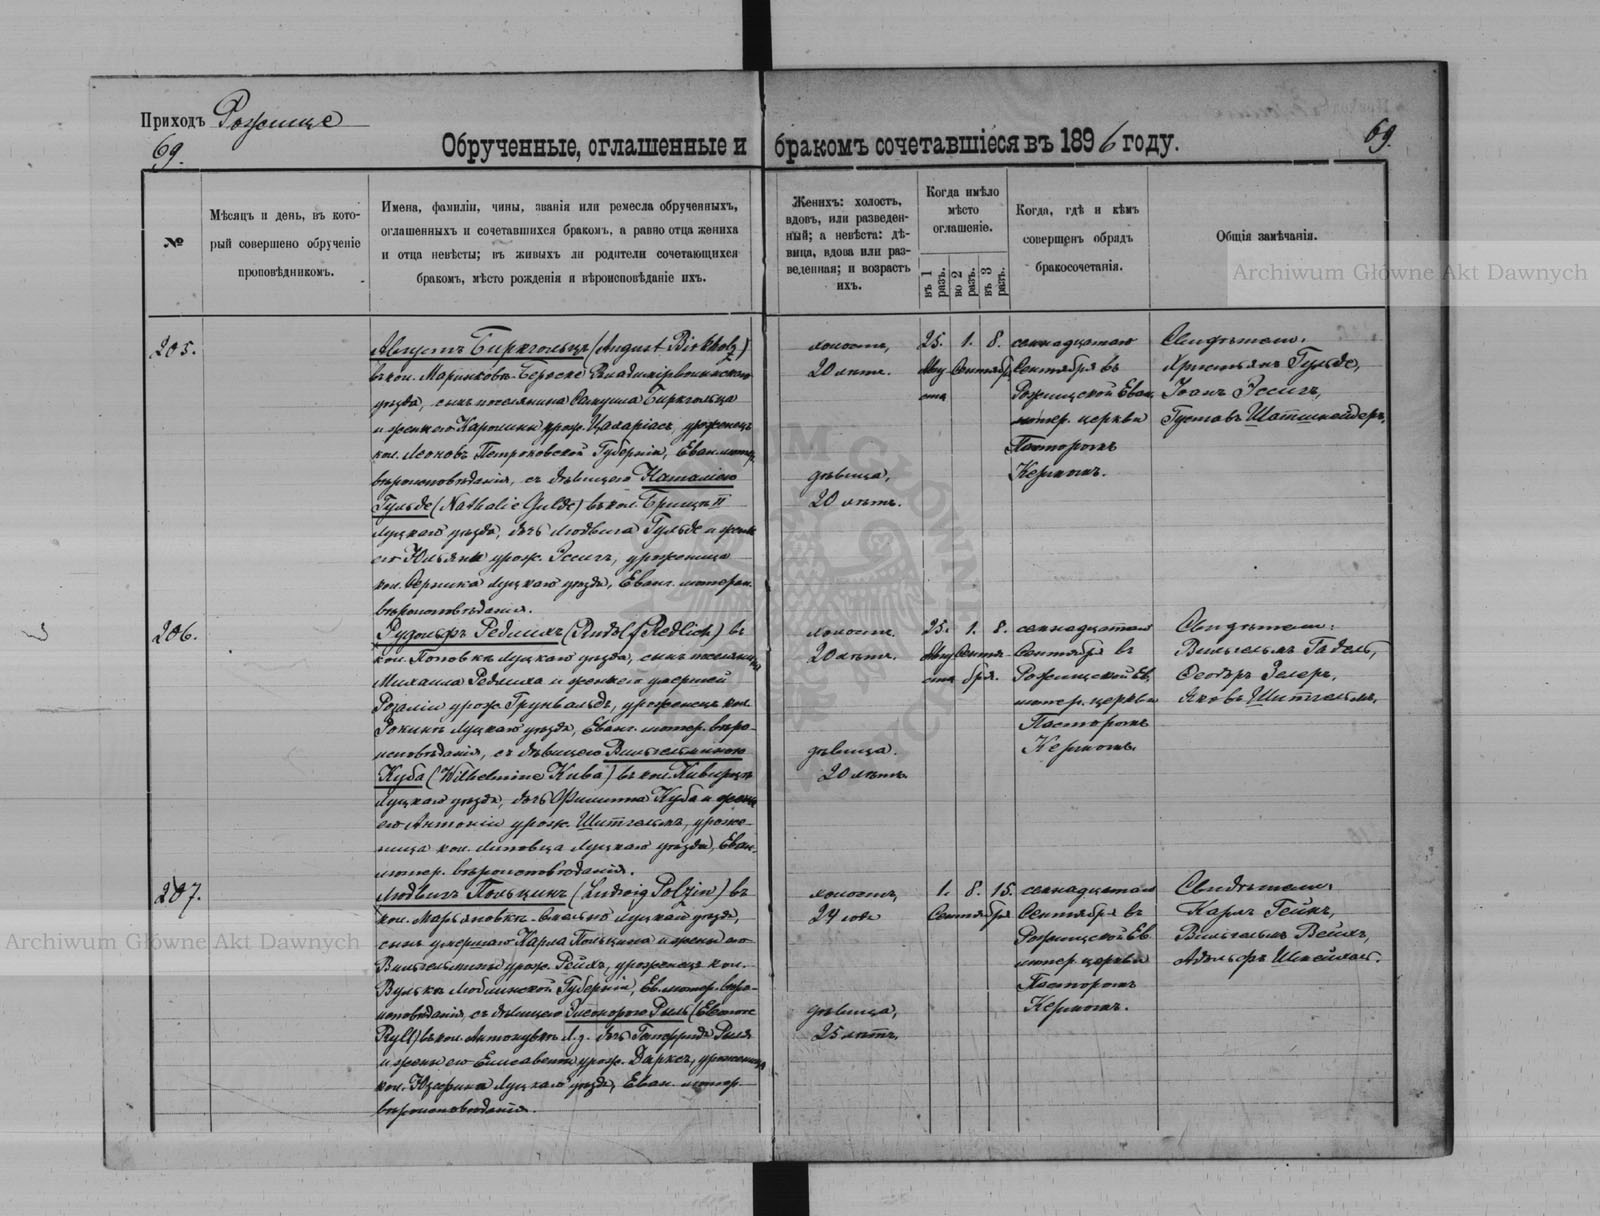 Приходъ Рожище
69.
69.
Обрученные, оглашенные и бракомъ сочетавшіеся въ 1896 году.
№
Мѣсяцъ и день, въ кото-
рый совершено обрученіе
проповѣдникомъ.
Имена, фамиліи, чины, званія или ремесла обрученныхъ,
оглашенныхъ и сочетавшихся бракомъ, а равно отца жениха
и отца невѣсты; въ живыхъ ли родители сочетающихся
бракомъ, мѣсто рожденія и вѣроисповѣданіе ихъ.
Женихъ: холостъ,
вдовъ, или разведен-
ный; а невѣста: дѣ-
вица, вдова или раз-
веденная; и возрастъ
ихъ.
Когда имѣло
мѣсто
оглашеніе.
въ 1 разъ.
во 2 разъ.
въ 3 разъ.
Когда, гдѣ и кѣмъ
совершенъ обрядъ
бракосочетанія.
Общія замѣчанія.
Archiwum Główne Akt Dawnych
205.
Августъ Биркгольцъ (August Birkholz)
въ кол. Маринковъ-Береске Владимірволынскаго
уѣзда, сынъ поселянина Самуила Биркгольца
и жены его Каролины урож. Цахаріасъ, уроженецъ
кол. Леоновъ Петроковской Губерніи, Еван. лютер.
вѣроисповѣданія, съ дѣвицею Наталіею
Гульде (Nathalie Gulde) въ кол. Брищъ II
Луцкаго уѣзда, дочь Людвига Гульде и жены
его Юльяны урож. Эссигъ, уроженица
кол. Луцкаго уѣзда, Еванг. лютеран.
вѣроисповѣданія.
холостъ,
20 лѣтъ.
дѣвица,
20 лѣтъ.
25. 1. 8.
Авгу Сентябр.
ста
семнадцатаго
Сентября въ
Рожищской Еван.
лютер. церкви
Пасторомъ
Кермомъ.
Свидѣтели:
Христьянъ Гульде,
Іоанъ Эссигъ,
Густавъ Шатшнейдеръ.
206.
Рудольфъ Редлихъ (Rudolf Redlich) въ
кол. Поповкѣ Луцкаго уѣзда, сынъ поселянина
Михаила Редлиха и жены его умершей
Розаліи урож. Грунвальдъ, уроженецъ кол.
Рокинъ Луцкаго уѣзда, Еванг. лютер. вѣро-
исповѣданія, съ дѣвицею Вильгельминою
Куба (Wilhelmine Kuba) въ кол. Киверцѣ
Луцкаго уѣзда, дочь Филиппа Куба и жены
его Антоніи урож. Шитгельмъ, уроже-
ница кол. Липовца Луцкаго уѣзда, Еван.
лютер. вѣроисповѣданія.
холостъ.
20 лѣтъ.
дѣвица.
20 лѣтъ
25. 1. 8.
Авгу Сентя
ста бря.
семнадцатаго
Сентября въ
Рожищской Ев.
лютер. церкви
Пасторомъ
Кермомъ.
Свидѣтели:
Вильгельмъ Гадель,
Феодоръ Зелеръ,
Яковъ Шитгельмъ.
207.
Людвигъ Польцинъ (Ludwig Polzin) въ
кол. Марьяновкѣ Луцкаго уѣзда,
сынъ умершаго Карла Польцина и жены его
Вильгельмины урож. Рейхъ, уроженецъ кол.
Вулькъ Люблинской Губерніи, Ев. лютер. вѣро-
исповѣданія, съ дѣвицею Элеонорою Рыль (Eleonore
Ryll) въ кол. Антоновкѣ Л. у. дочь Готфрида Рыля
и жены его Елисаветы урож. Дарксъ, уроженица
кол. Юзефина Луцкаго уѣзда, Еван. лютер.
вѣроисповѣданія.
холостъ,
24 года
дѣвица,
25 лѣтъ,
1. 8. 15.
Сентября
семнадцатаго
Сентября въ
Рожищской Ев.
лютер. церкви
Пасторомъ
Кермомъ.
Свидѣтели:
Карлъ Гейнъ,
Вильгельмъ Вейхъ,
Адольфъ
Archiwum Główne Akt Dawnych